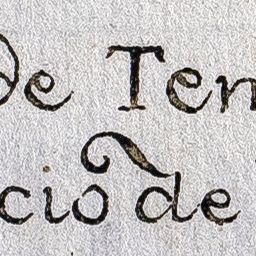 de Ten
cio de